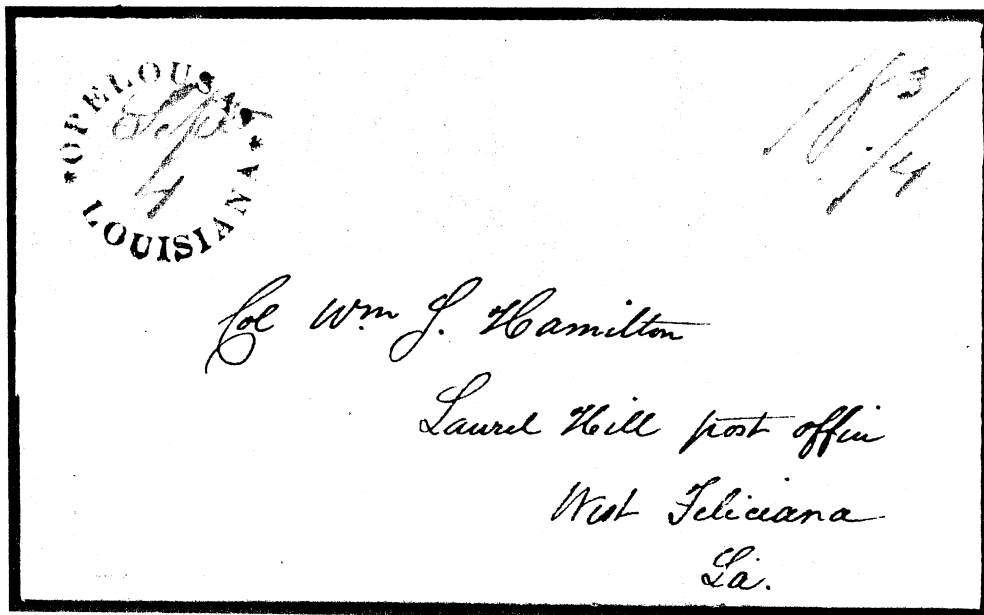 *OPELOUSAS*
LOUISIANA
Sept
4
18 3/4
Col Wm J. Hamilton
Laurel Hill post office
West Feliciana
La.